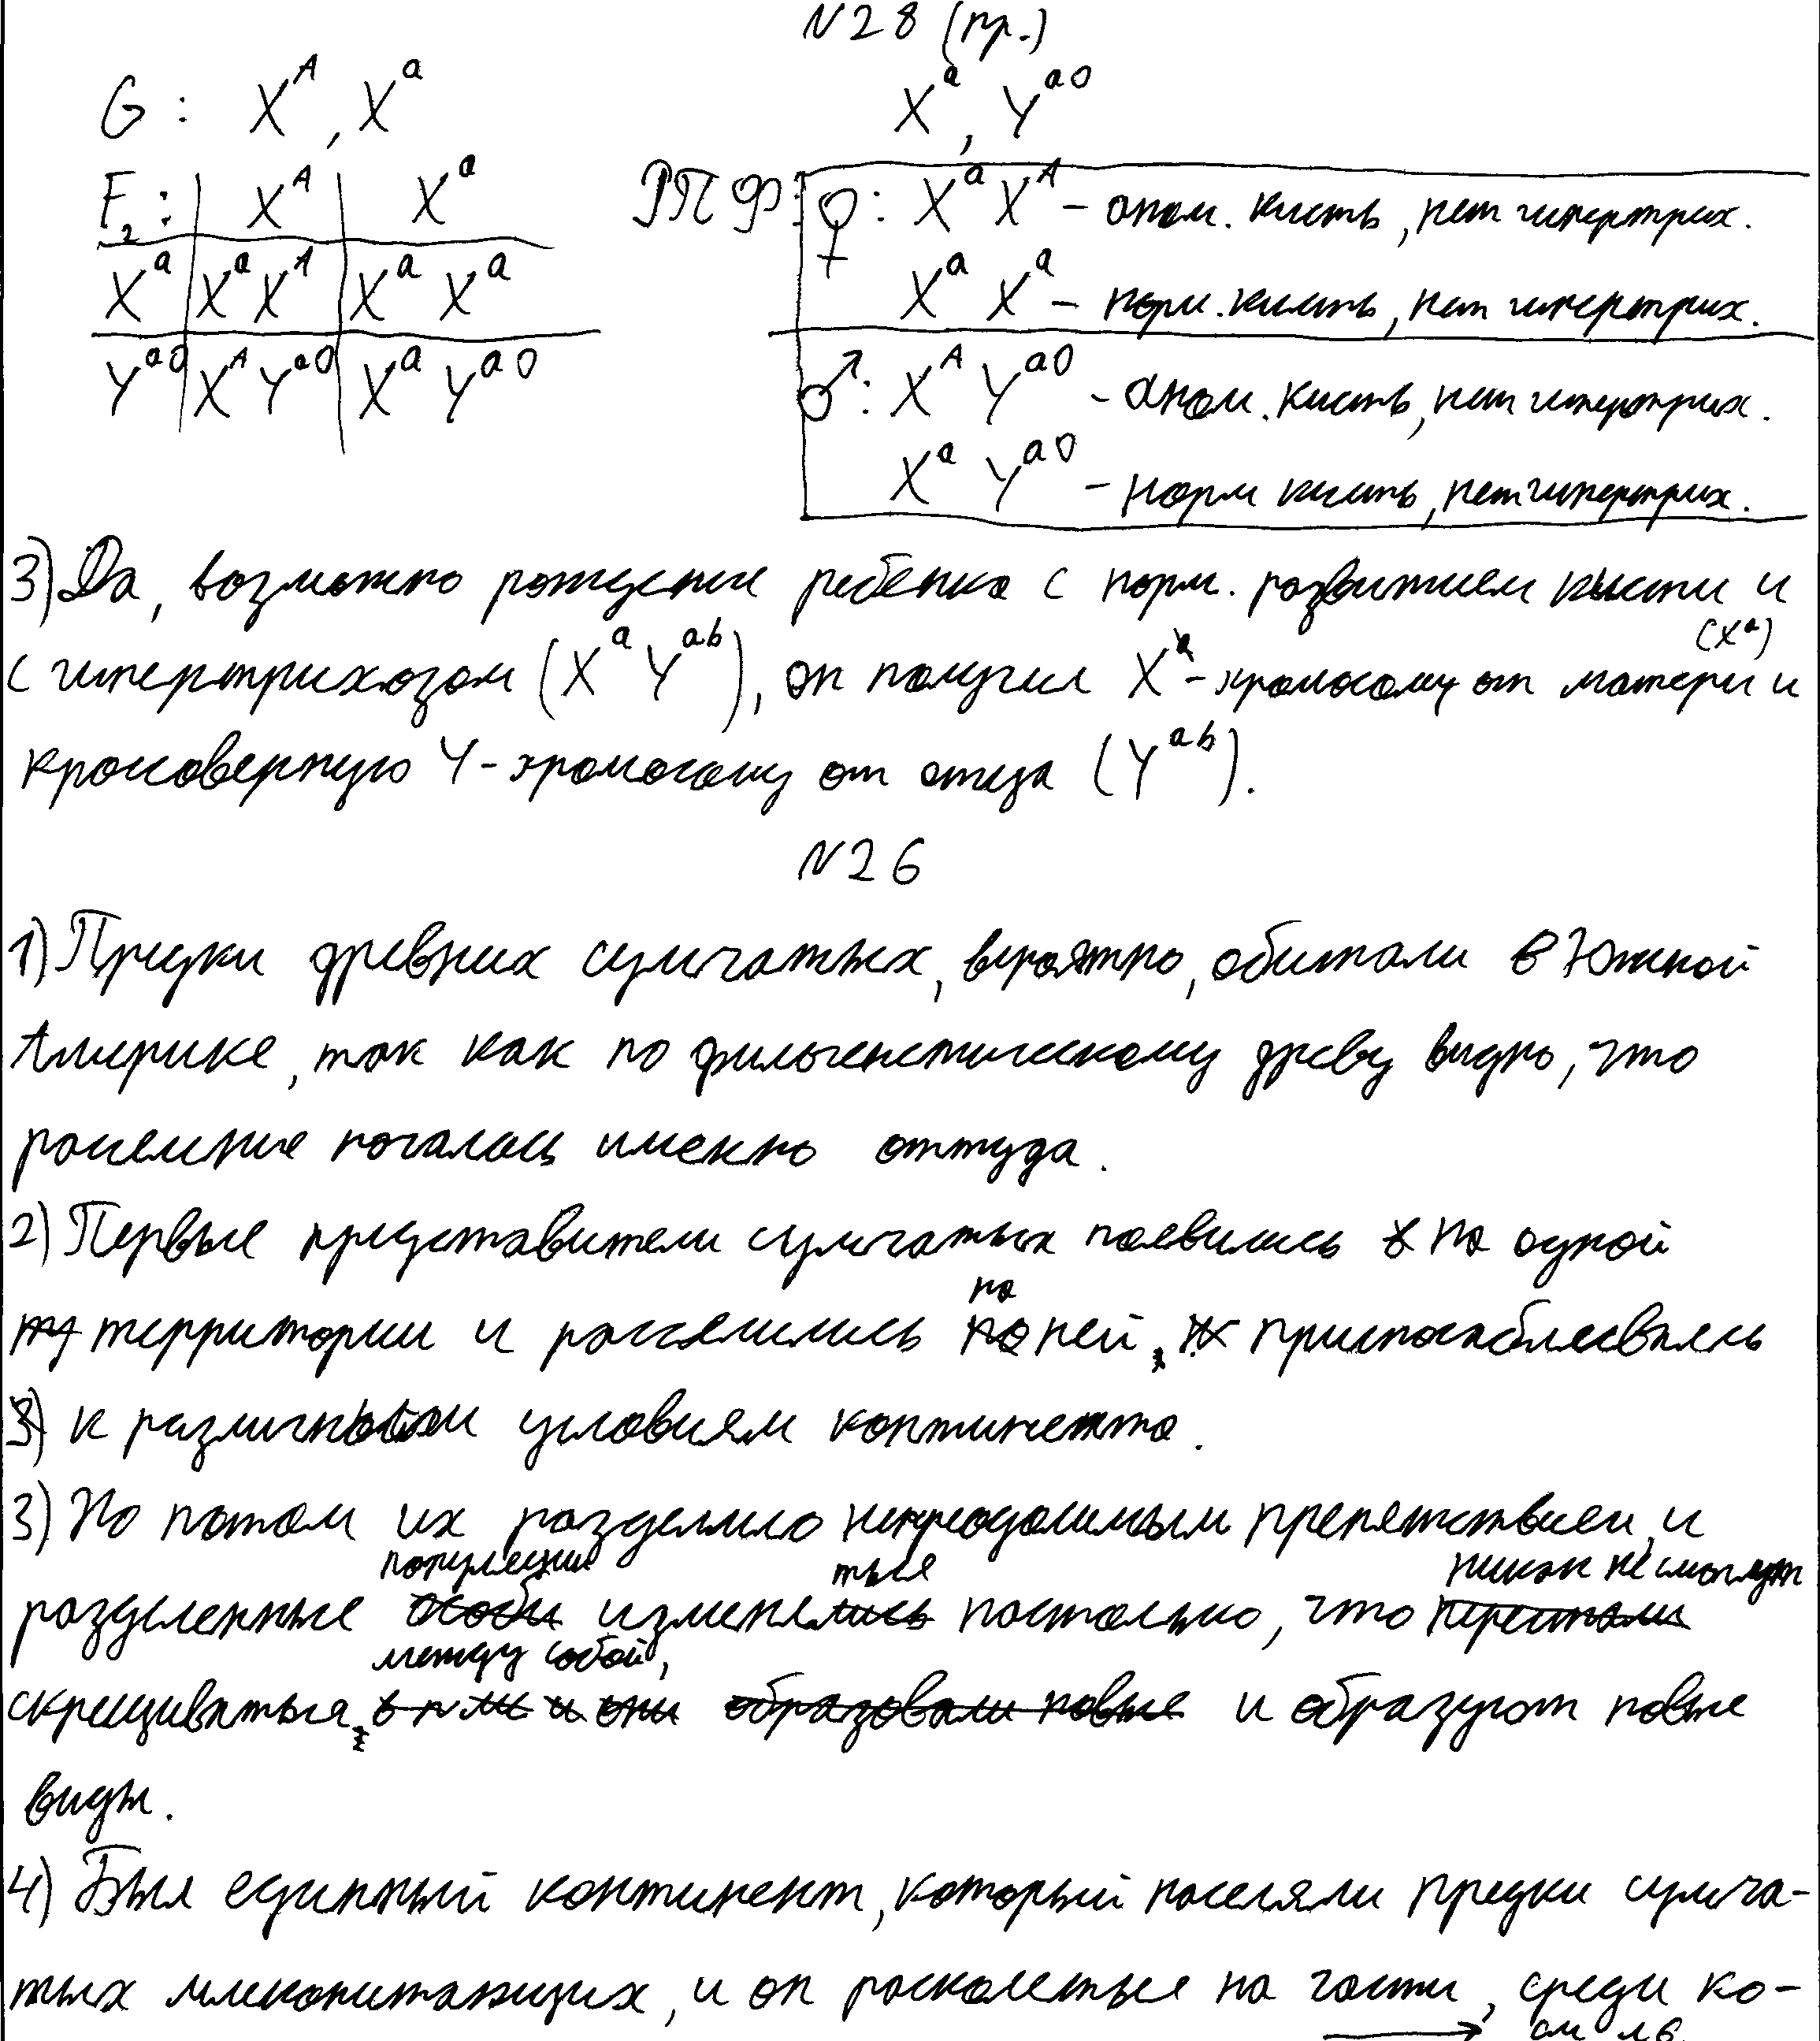 N28 (пр.)
G: X^A, X^a X^a, Y^a0
F2: X^A X^a
X^a X^aX^A X^a X^a
Y^a0 X^A Y^a0 X^a Y^a0
РПФ: ♀: X^a X^A – аном. кисть, нет гипертрих.
X^a X^a – норм. кисть, нет гипертрих.
♂: X^A Y^a0 – аном. кисть, нет гипертрих.
X^a Y^a0 – норм кисть, нет гипертрих.
3) Да, возможно рождение ребёнка с норм. развитием кисти и
с гипертрихозом (X^a Y^ab), он получил X^a-хромосому от матери (X^a) и
кроссоверную Y-хромосому от отца (Y^ab).
N26
1) Предки древних сумчатых, вероятно, обитали в Южной
Америке, так как по филогенетическому древу видно, что
расселение началось именно оттуда.
2) Первые представители сумчатых появились на одной
территории и расселились по ней, приспосабливаясь
к различным условиям континента.
3) Но потом их разделило непреодолимым препятствием, и
разделенные популяции изменяться настолько, что никак не смогут
скрещиваться между собой, и образуют новые
виды.
4) Был единный континент, который населяли предки сумча-
тых млекопитающих, и он расколеться на части, среди ко-
→ см лв.